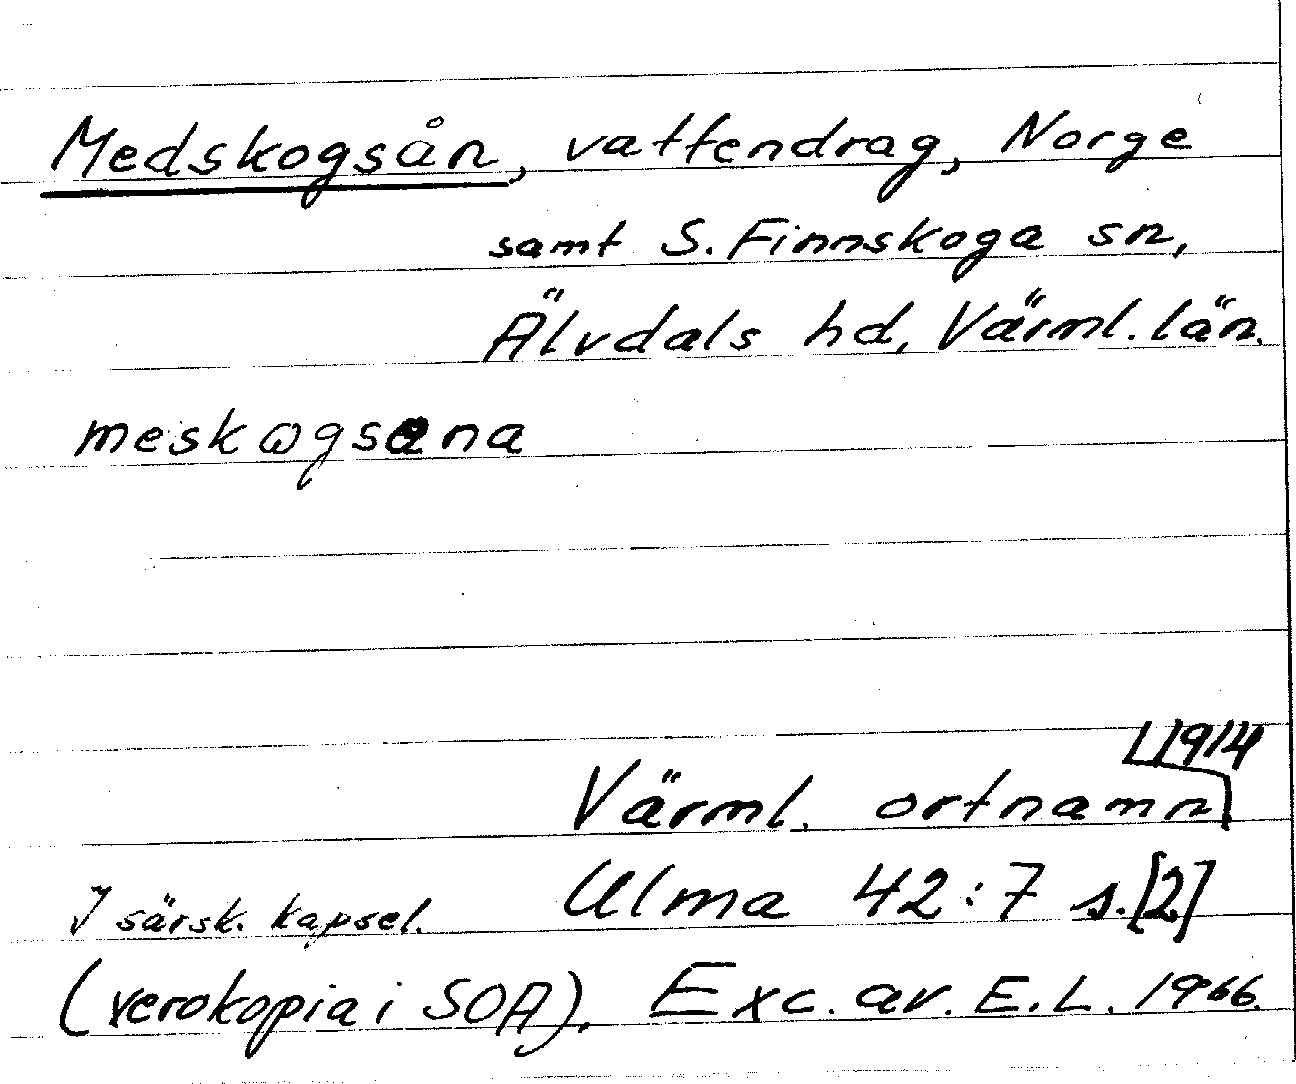 Medskogsån, vattendrag, Norge
samt S. Finnskoga sn,
Älvdals hd, Värml. län.
1914
Värml. ortnamn
Ulma 42:7 s.[2]
I särsk. kapsel.
(xerokopia i SOA). Exc. av. E.L. 1966.